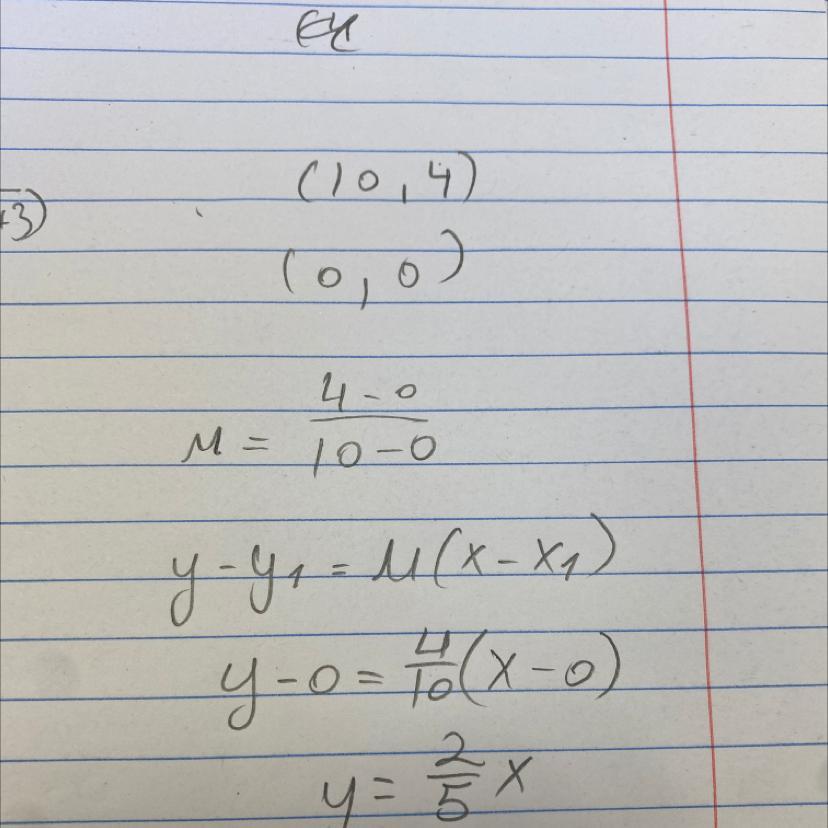 +3)
(10, 4)
(0, 0)
M = \frac{4-0}{10-0}
y - y₁ = M(x - x₁)
y - 0 = \frac{4}{10}(x - 0)
y = \frac{2}{5} x